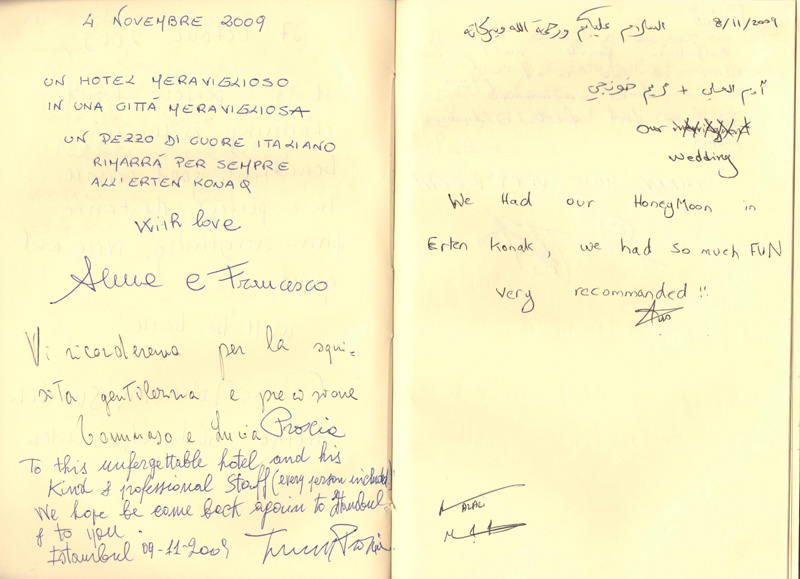 4 NOVEMBRE 2009
UN HOTEL MERAVIGLIOSO
IN UNA CITTÁ MERAVIGLIOSA
UN PEZZO DI CUORE ITALIANO
RIMARRÁ PER SEMPRE
ALL'ERTEN KONAQ
With love
e Francesco
Vi ricorderemo per la squi-
sita gentilezza e precisione
Tommaso e Lucia Proscia
To this unfergettable hotel and his
Kind & professional Staff (every person included)
We hope be come back again to Istanbul
& to you.
Istambul 09-11-2009
السلام عليكم ورحمة الله وبركاته 8/11/2009
آدم العالي + مريم خونجي
Our
wedding
We Had our HoneyMoon in
Erten Konak, we had so much FUN
very recommanded!!